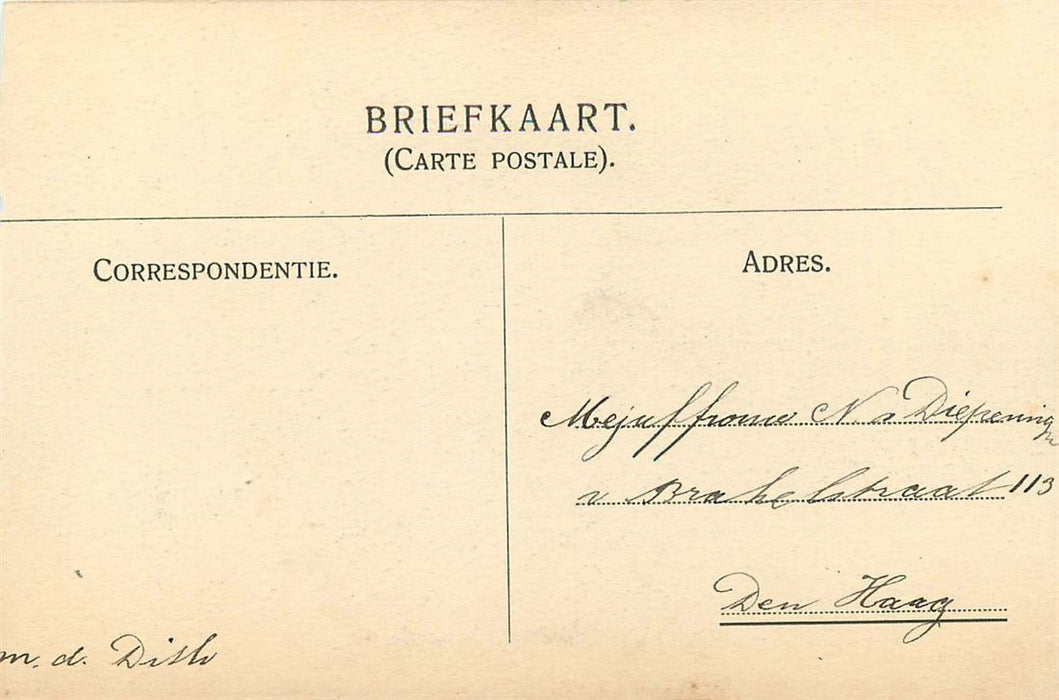 BRIEFKAART.
(CARTE POSTALE).
CORRESPONDENTIE.
ADRES.
Mejuffrouw N
v Brakelstraat 113
Den Haag
m. d. Dish